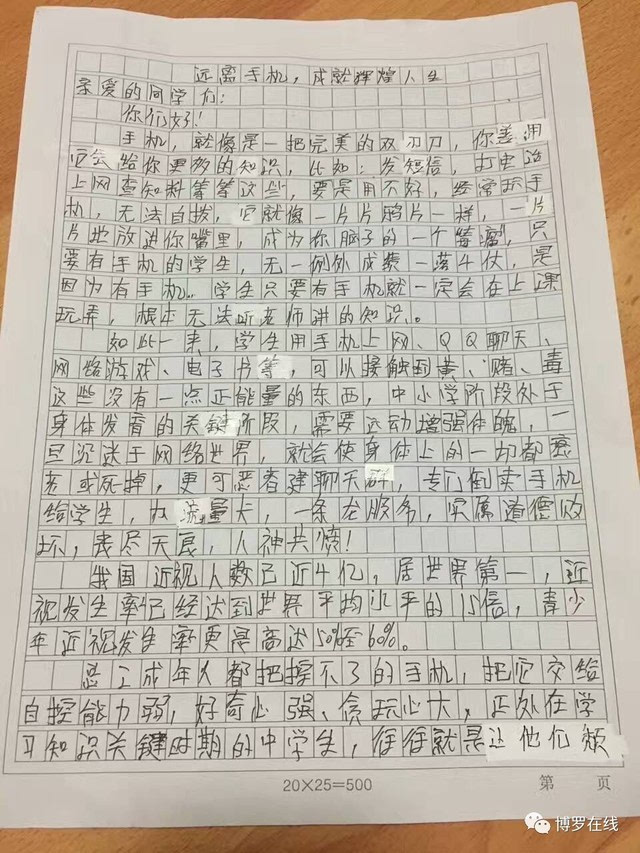 远离手机，成就辉煌人生
亲爱的同学们：
你们好！
手机，就像是一把完美的双刃刀，你善用
它会给你更多的知识，比如：发短信，打电话
上网查知料等等这些，要是用不好，经常玩手
机，无法自拔，它就像一片片鸦片一样，一片
片地放进你嘴里，成为你脑子的一个毒瘤，只
要有手机的学生，无一例外成绩一落4仗，是
因为有手机。学生只要有手机就一定会在上课
玩弄，根本无法听老师讲的知识。
如此一来，学生用手机上网、QQ聊天、
网络游戏、电子书等，可以接触到黄、赌、毒
这些没有一点正能量的东西，中小学阶段处于
身体发育的关键阶段，需要运动增强体魄，一
旦沉迷于网络世界，就会使身体上的一切都衰
老或死掉，更可恶者建聊天群，专门倒卖手机
给学生，办流量卡，一条龙服务，实属道德败
坏，丧尽天良，人神共愤！
我国近视人数已近4亿，居世界第一，近
视发生率已经达到世界平均水平的1.5倍，青少
年近视发生率更是高达50%至60%。
总之成年人都把握不了的手机，把它交给
自控能力弱，好奇心强、贪玩心大，正处在学
习知识关键时期的中学生，往往就是让他们颓
20×25=500
第 页
博罗在线